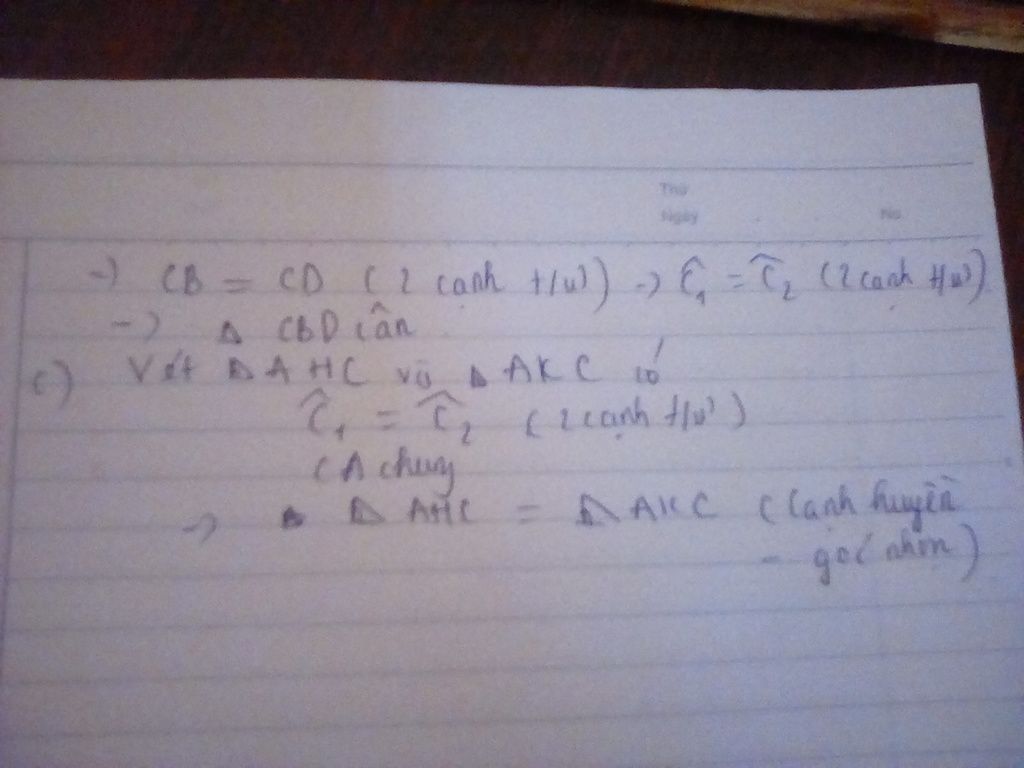 Thứ
Ngày No
-) CB = CD ( 2 cạnh t/ư) -) Ĉ₁ = Ĉ₂ (2 cạnh t/ư)
-) Δ CBD cân
c) Xét Δ AHC và Δ AKC có
Ĉ₁ = Ĉ₂ ( 2 cạnh t/ư )
CA chung
-) Δ AHC = Δ AKC ( Cạnh huyền
- góc nhọn )